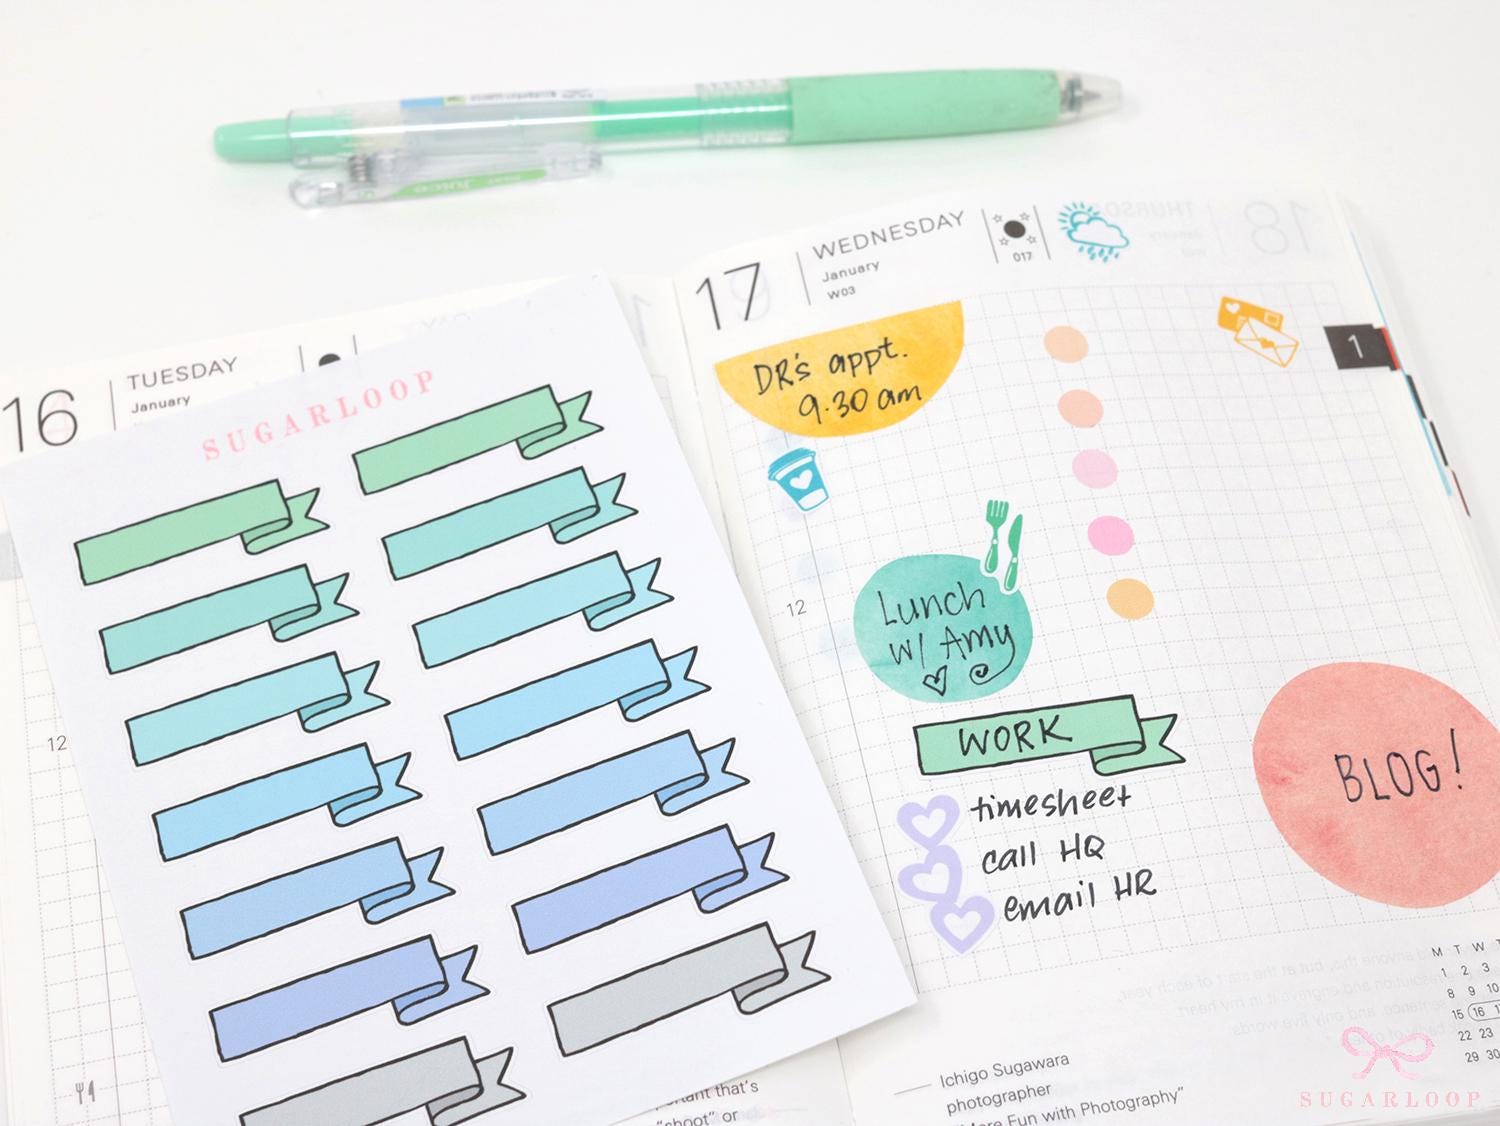 juice
16
TUESDAY
January
SUGARLOOP
12
17
WEDNESDAY
January
W03
017
18
1
DR's appt.
9.30 am
12
Lunch
w/ Amy
WORK
timesheet
call HQ
email HR
BLOG!
M T W
1 2 3
8 9 10
15 16
22 23
29 30
Ichigo Sugawara
photographer
More Fun with Photography"
that's
shoot" or
SUGARLOOP